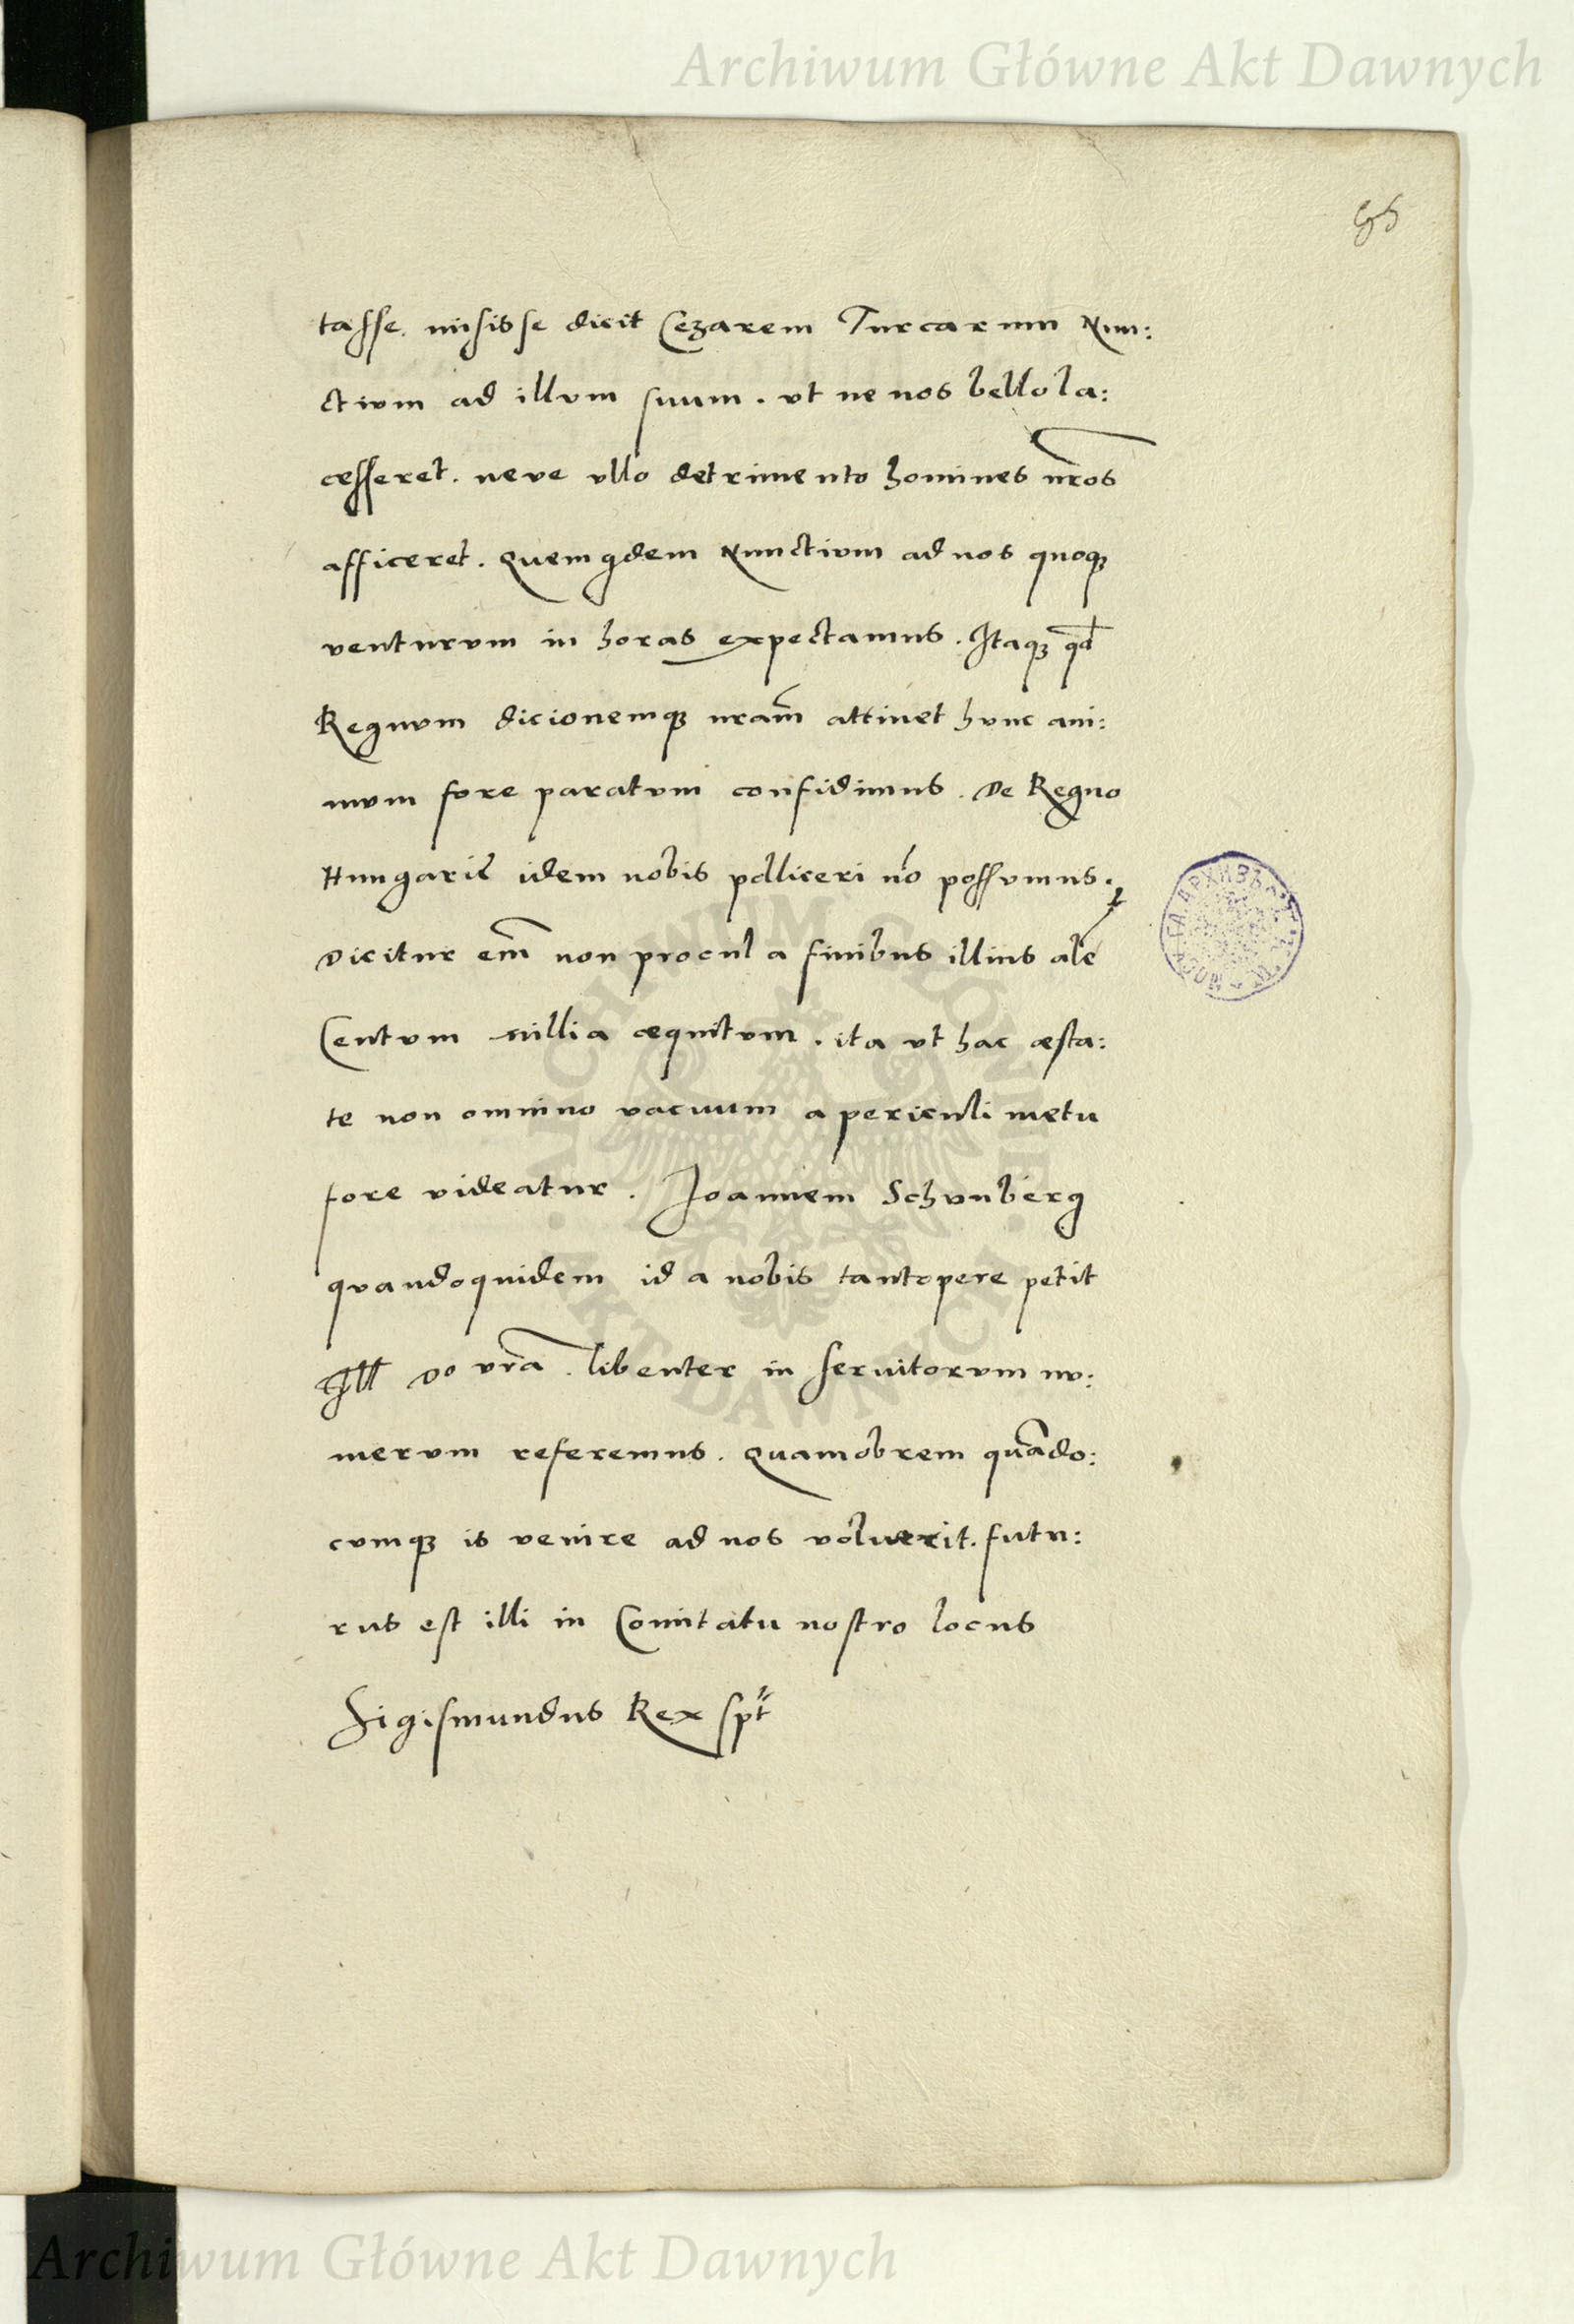 Archiwum Główne Akt Dawnych
tasse. misisse dicit Cezarem Turcarum Nun:
ctium ad illvm suum. vt ne nos bello la:
cesseret. neve vllo detrimento homines nr̃os
afficeret. Quem qdem Nunctivm ad nos quoqȝ
venturvm in horas expectamus. Itaqȝ qd
Regnvm dicionemqȝ nram̃ attinet hvnc ani:
mvm fore paratvm confidimus. De Regno
Hungarię idem nobis polliceri nõ possvmus.
Dicitur em̃ non procul a finibus illius alẽ
Centvm millia æquitvm. ita vt hac æsta:
te non omnino vacuum a periculi metu
fore videatur. Joannem Schvnberg
qvandoquidem id a nobis tantopere petit
Ill Do vr̃a. libenter in servitorvm nv:
mervm referemus. Quamobrem quãdo:
cvmqȝ is venire ad nos voluerit. futu:
rus est illi in Comitatu nostro locus
Sigismundus Rex spt
ARCHIWUM GŁÓWNE
AKT DAWNYCH
Archiwum Główne Akt Dawnych